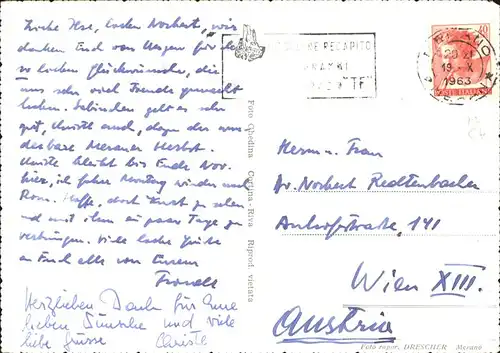 Liebe Ilse, lieber Norbert, wir
danken Euch von Herzen für die
so lieben Glückwünsche, die
uns sehr viel Freude gemacht
haben. geht es sehr
gut, und, der wun-
derbare Meraner Herbst.
bleibt bis Ende Nov.
hier, ich fahre Montag wieder nach
Rom. Hoffe, dort Kurt zu sehen
und mit ihm ein paar Tage zu
verbringen. Viele liebe Grüße
an Euch alle von Eurem
Herzlichen Dank für Eure
lieben Wünsche und viele
liebe Grüsse
Foto Ghedina Cortina-Riva Riprod. vietata
RECAPITO
MERANO
19-X
1963
POSTE ITALIANE
Herrn u. Frau
Dr. Norbert Redtenbacher
141
Wien XIII.
Austria
DRESCHER Merano